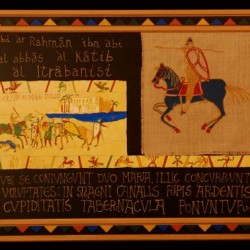 abd ar Rahmān ibn abi
al abbās al kātib
al Itrābanisi
UVE SE CONIUNGUNT DUO MARIA, ILLIC CONCURRUNT
VOLUPTATES: IN SRAGNI CANALIS RIPIS ARDENTIS
CUPIDITATIS TABERNACULA PONUNTUR